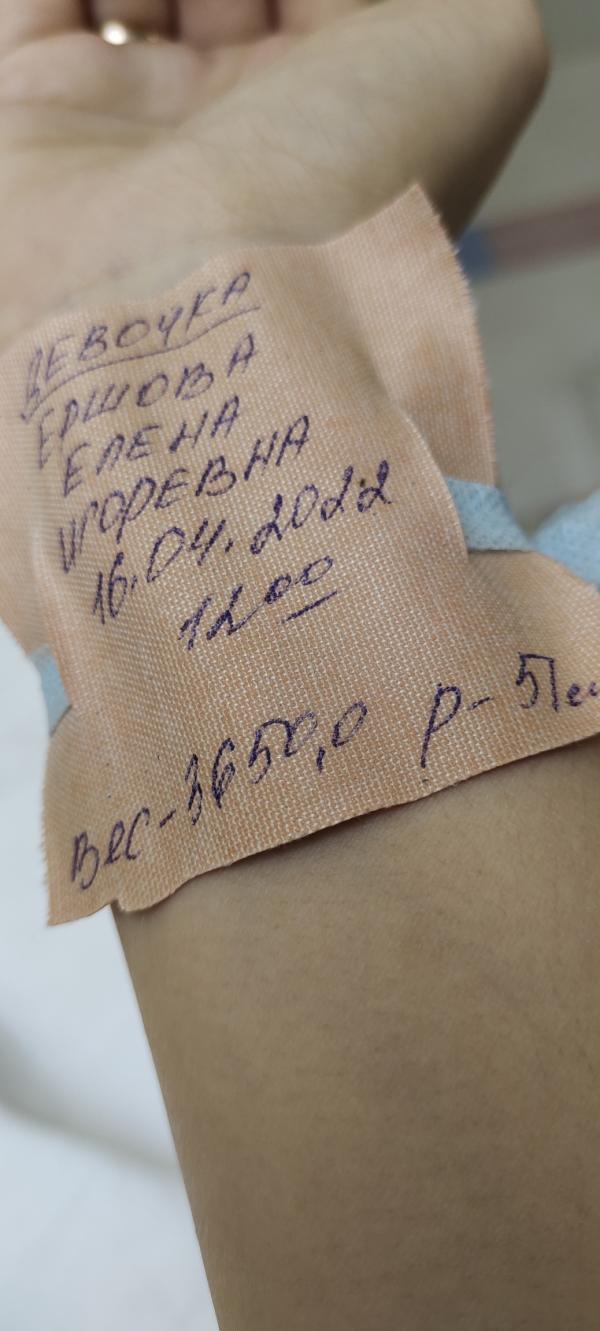 ДЕВОЧКА
ЕРШОВА
ЕЛЕНА
ИГОРЕВНА
16.04.2022
12⁰⁰
Вес-3650,0 р-51см